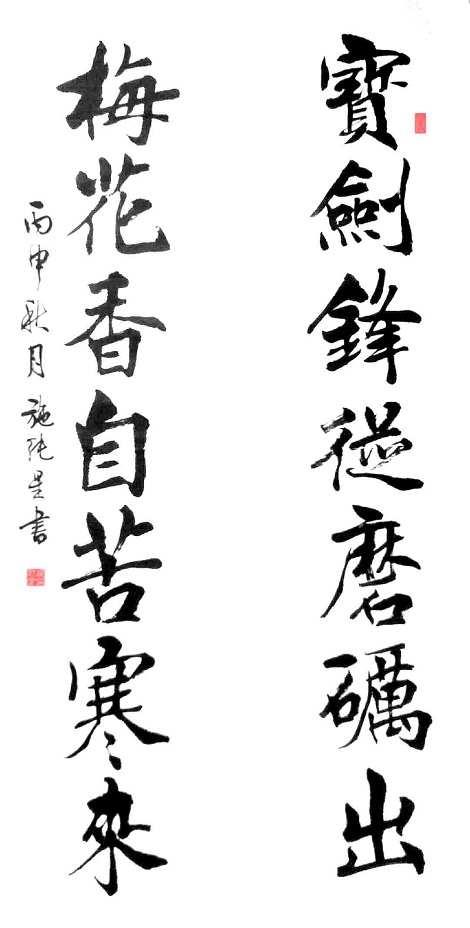 寶劍鋒從磨礪出
梅花香自苦寒來
丙申秋月施純星書